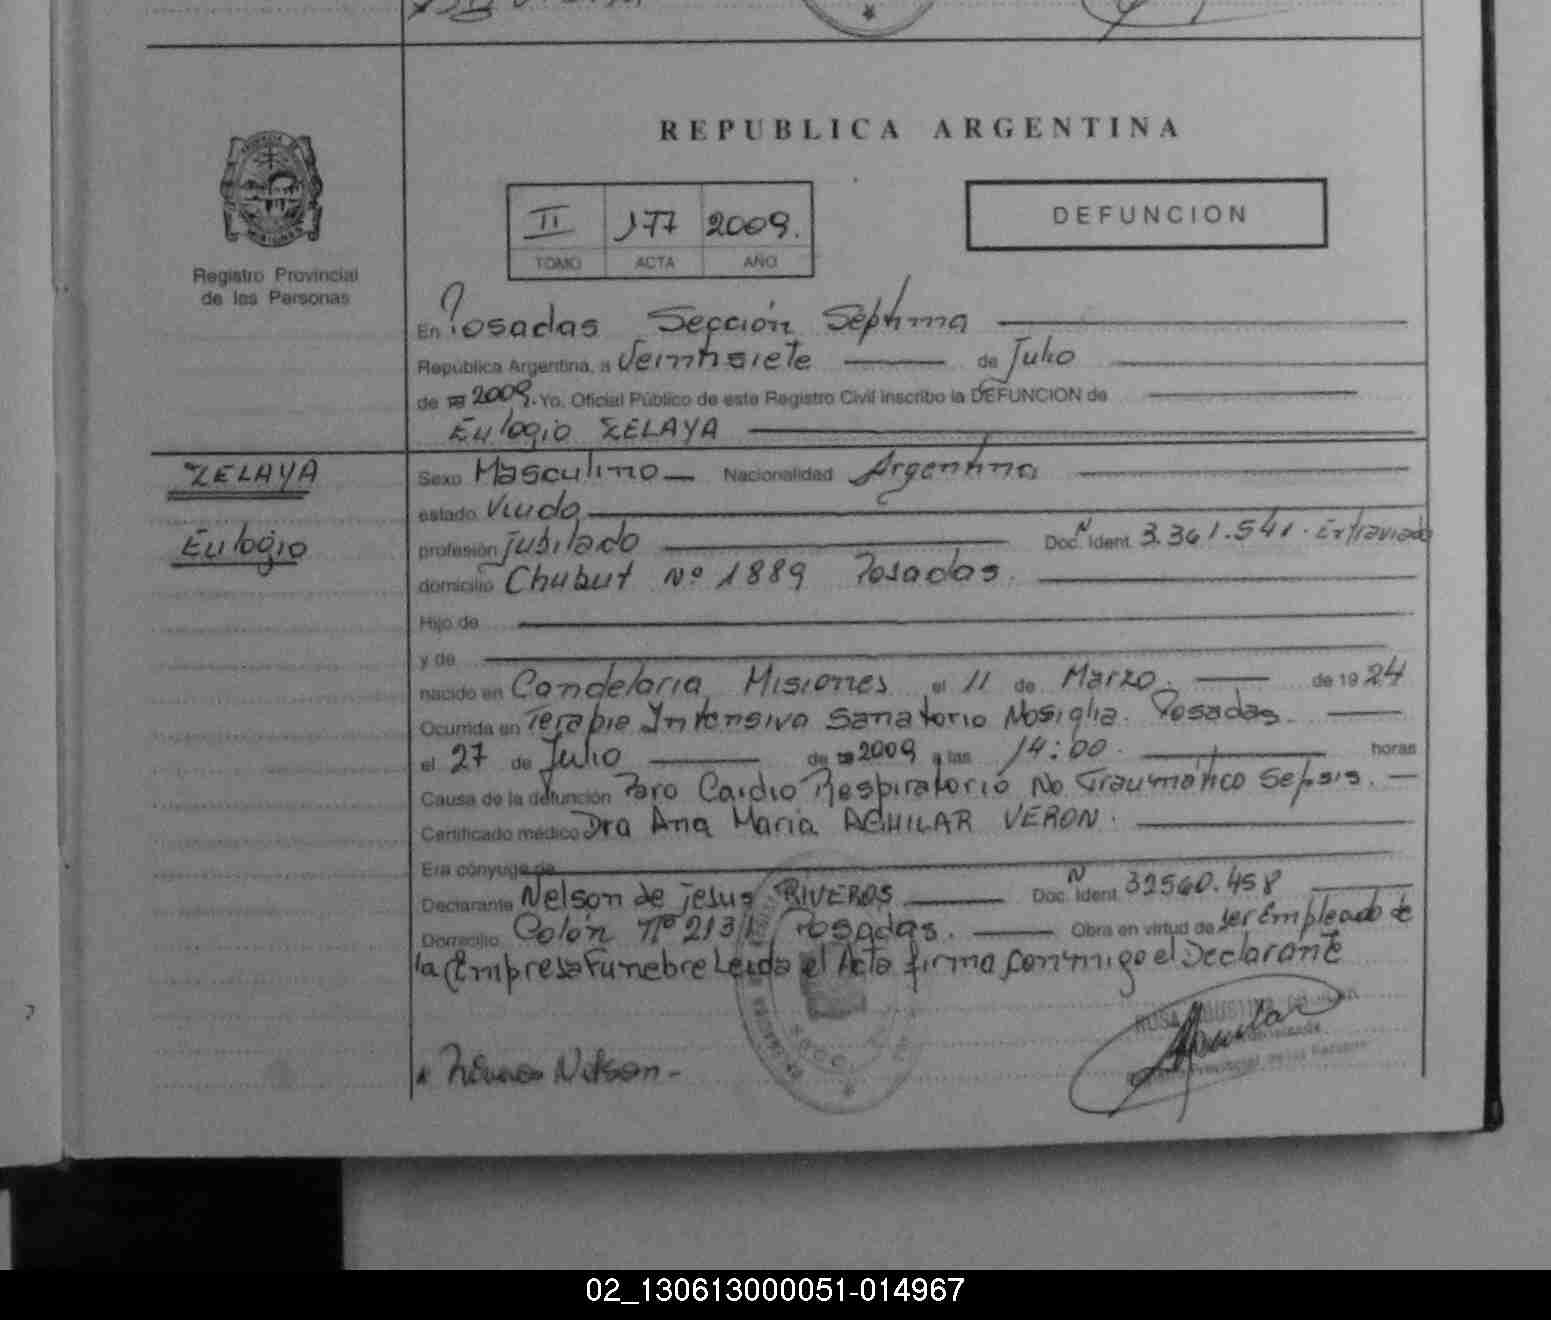 REPUBLICA ARGENTINA
II 177 2009.
TOMO ACTA AÑO
DEFUNCION
Registro Provincial
de las Personas
En Posadas Sección Séptima
República Argentina, a Veintisiete de Julio
de 2009. Yo, Oficial Público de este Registro Civil inscribo la DEFUNCION de
Eulogio ZELAYA
ZELAYA
Eulogio
Sexo Masculino Nacionalidad Argentina
estado Viudo
profesión jubilado Doc. N Ident. 3.361.541. Extraviado
domicilio Chubut Nº 1889 Posadas.
Hijo de
y de
nacido en Candelaria Misiones el 11 de Marzo. de 1924
Ocurrida en Terapia Intensiva Sanatorio Nosiglia. Posadas.
el 27 de Julio de 2009 a las 14:00. horas
Causa de la defunción Paro Cardio Respiratorio No Traumático Sepsis.
Certificado médico Dra Ana Maria AGUILAR VERON.
Era cónyuge de
Declarante Nelson de jesus RIVEROS Doc. N Ident. 32560.458
Domicilio Colón Nº 2131 Posadas. Obra en virtud de ser Empleado de
la Empresa Funebre Leída el Acta firma conmigo el Declarante
Nelson
02_130613000051-014967